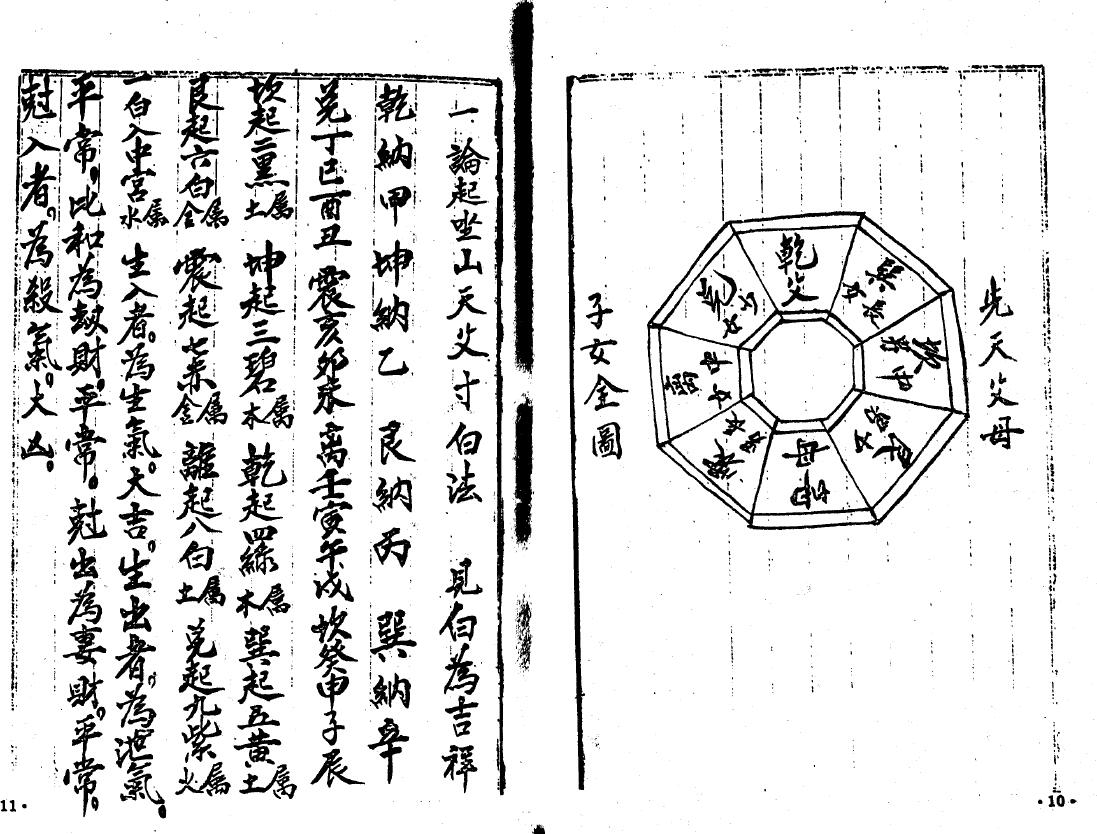 先天父母
乾父
巽長女
坎中男
艮少男
坤母
震長男
離中女
兌少女
子女全圖
·10·
一論起坐山天父寸白法 見白為吉祥
乾納甲 坤納乙 艮納丙 巽納辛
兌丁巳酉丑 震亥卯未 离壬寅午戌 坎癸申子辰
坎起二黑属土 坤起三碧属木 乾起四綠属木 巽起五黄属土
艮起六白属金 震起七赤属金 離起八白属土 兌起九紫属火
一白入中宮属水 生入者。為生氣。大吉。生出者。為泄氣。
平常。比和為 財。平常。尅出為妻財。平常。
尅入者。為殺氣。大凶。
11·